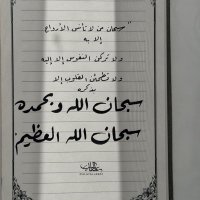 "سبحان من لا تأنس الأرواح
إلا به
ولا تركن النفوس إلا إليه
ولا تطمئن القلوب إلا
بذكره
سبحان الله وبحمده
سبحان الله العظيم